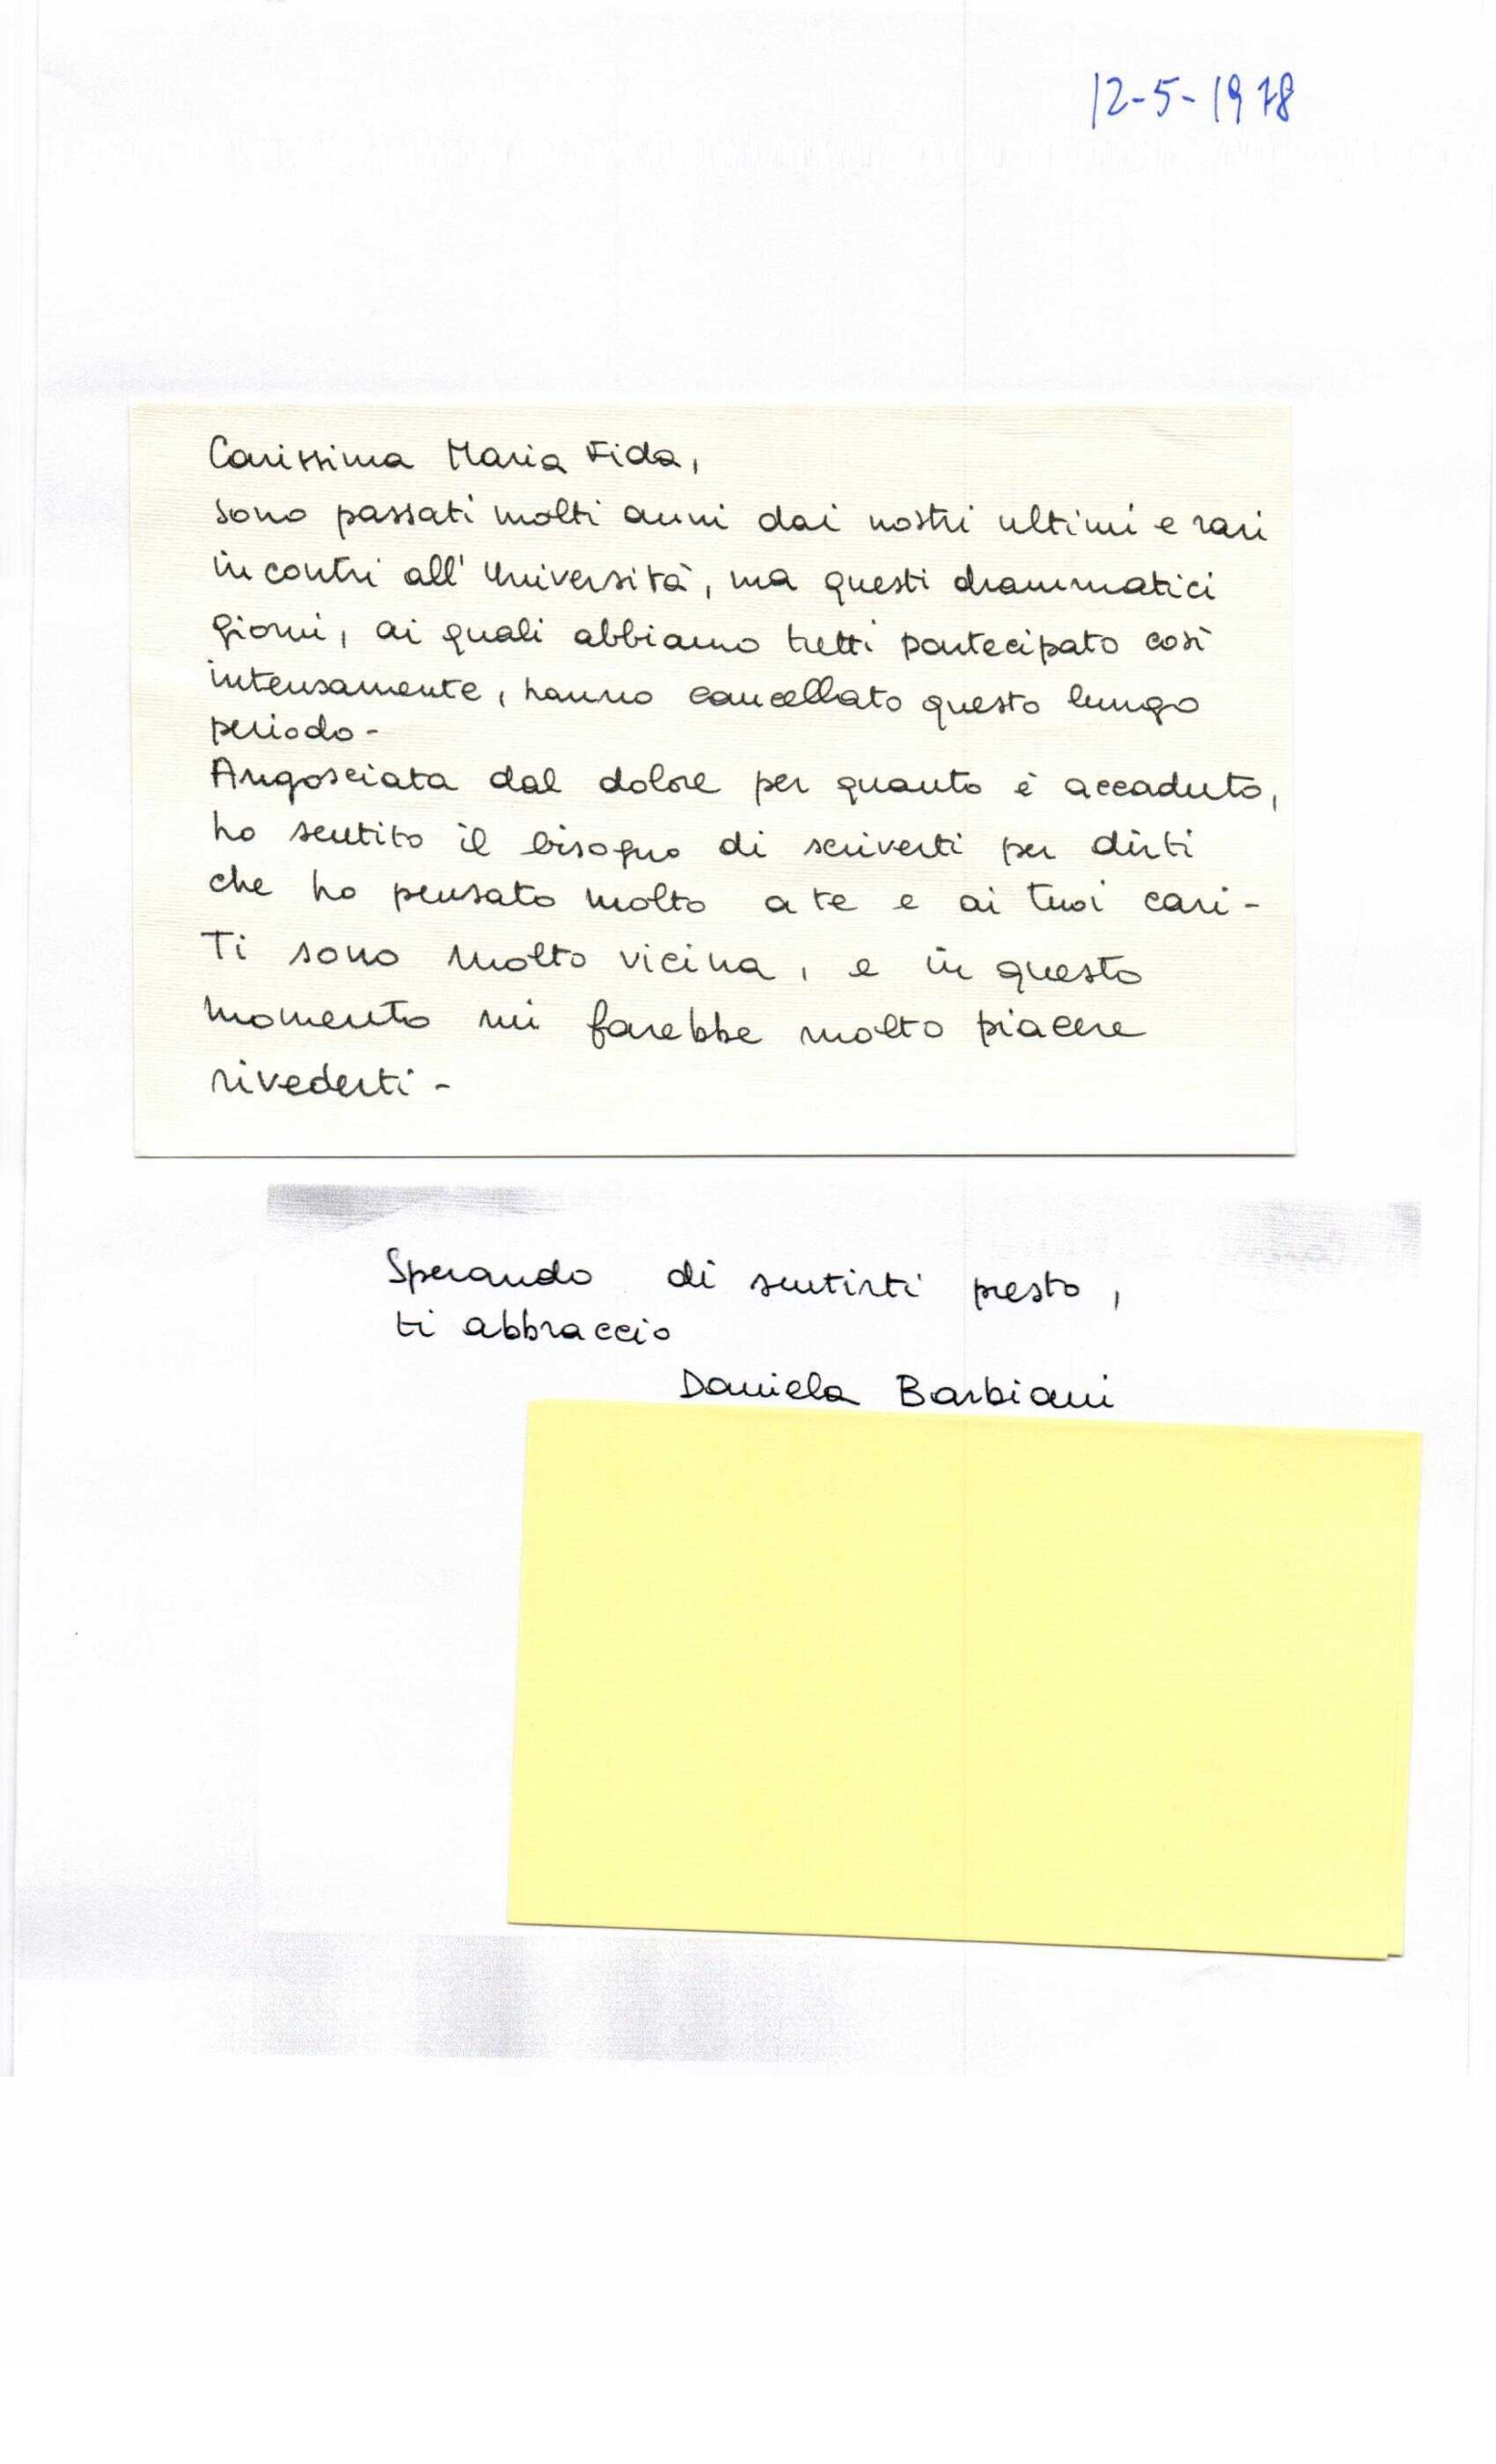 12-5-1978
Carissima Maria Fida,
sono passati molti anni dai nostri ultimi e rari
incontri all'Università, ma questi drammatici
giorni, ai quali abbiamo tutti partecipato così
intensamente, hanno cancellato questo lungo
periodo-
Angosciata dal dolore per quanto è accaduto,
ho sentito il bisogno di scriverti per dirti
che ho pensato molto a te e ai tuoi cari-
Ti sono molto vicina, e in questo
momento mi farebbe molto piacere
rivederti-
Sperando di sentirti presto,
ti abbraccio
Daniela Barbiani